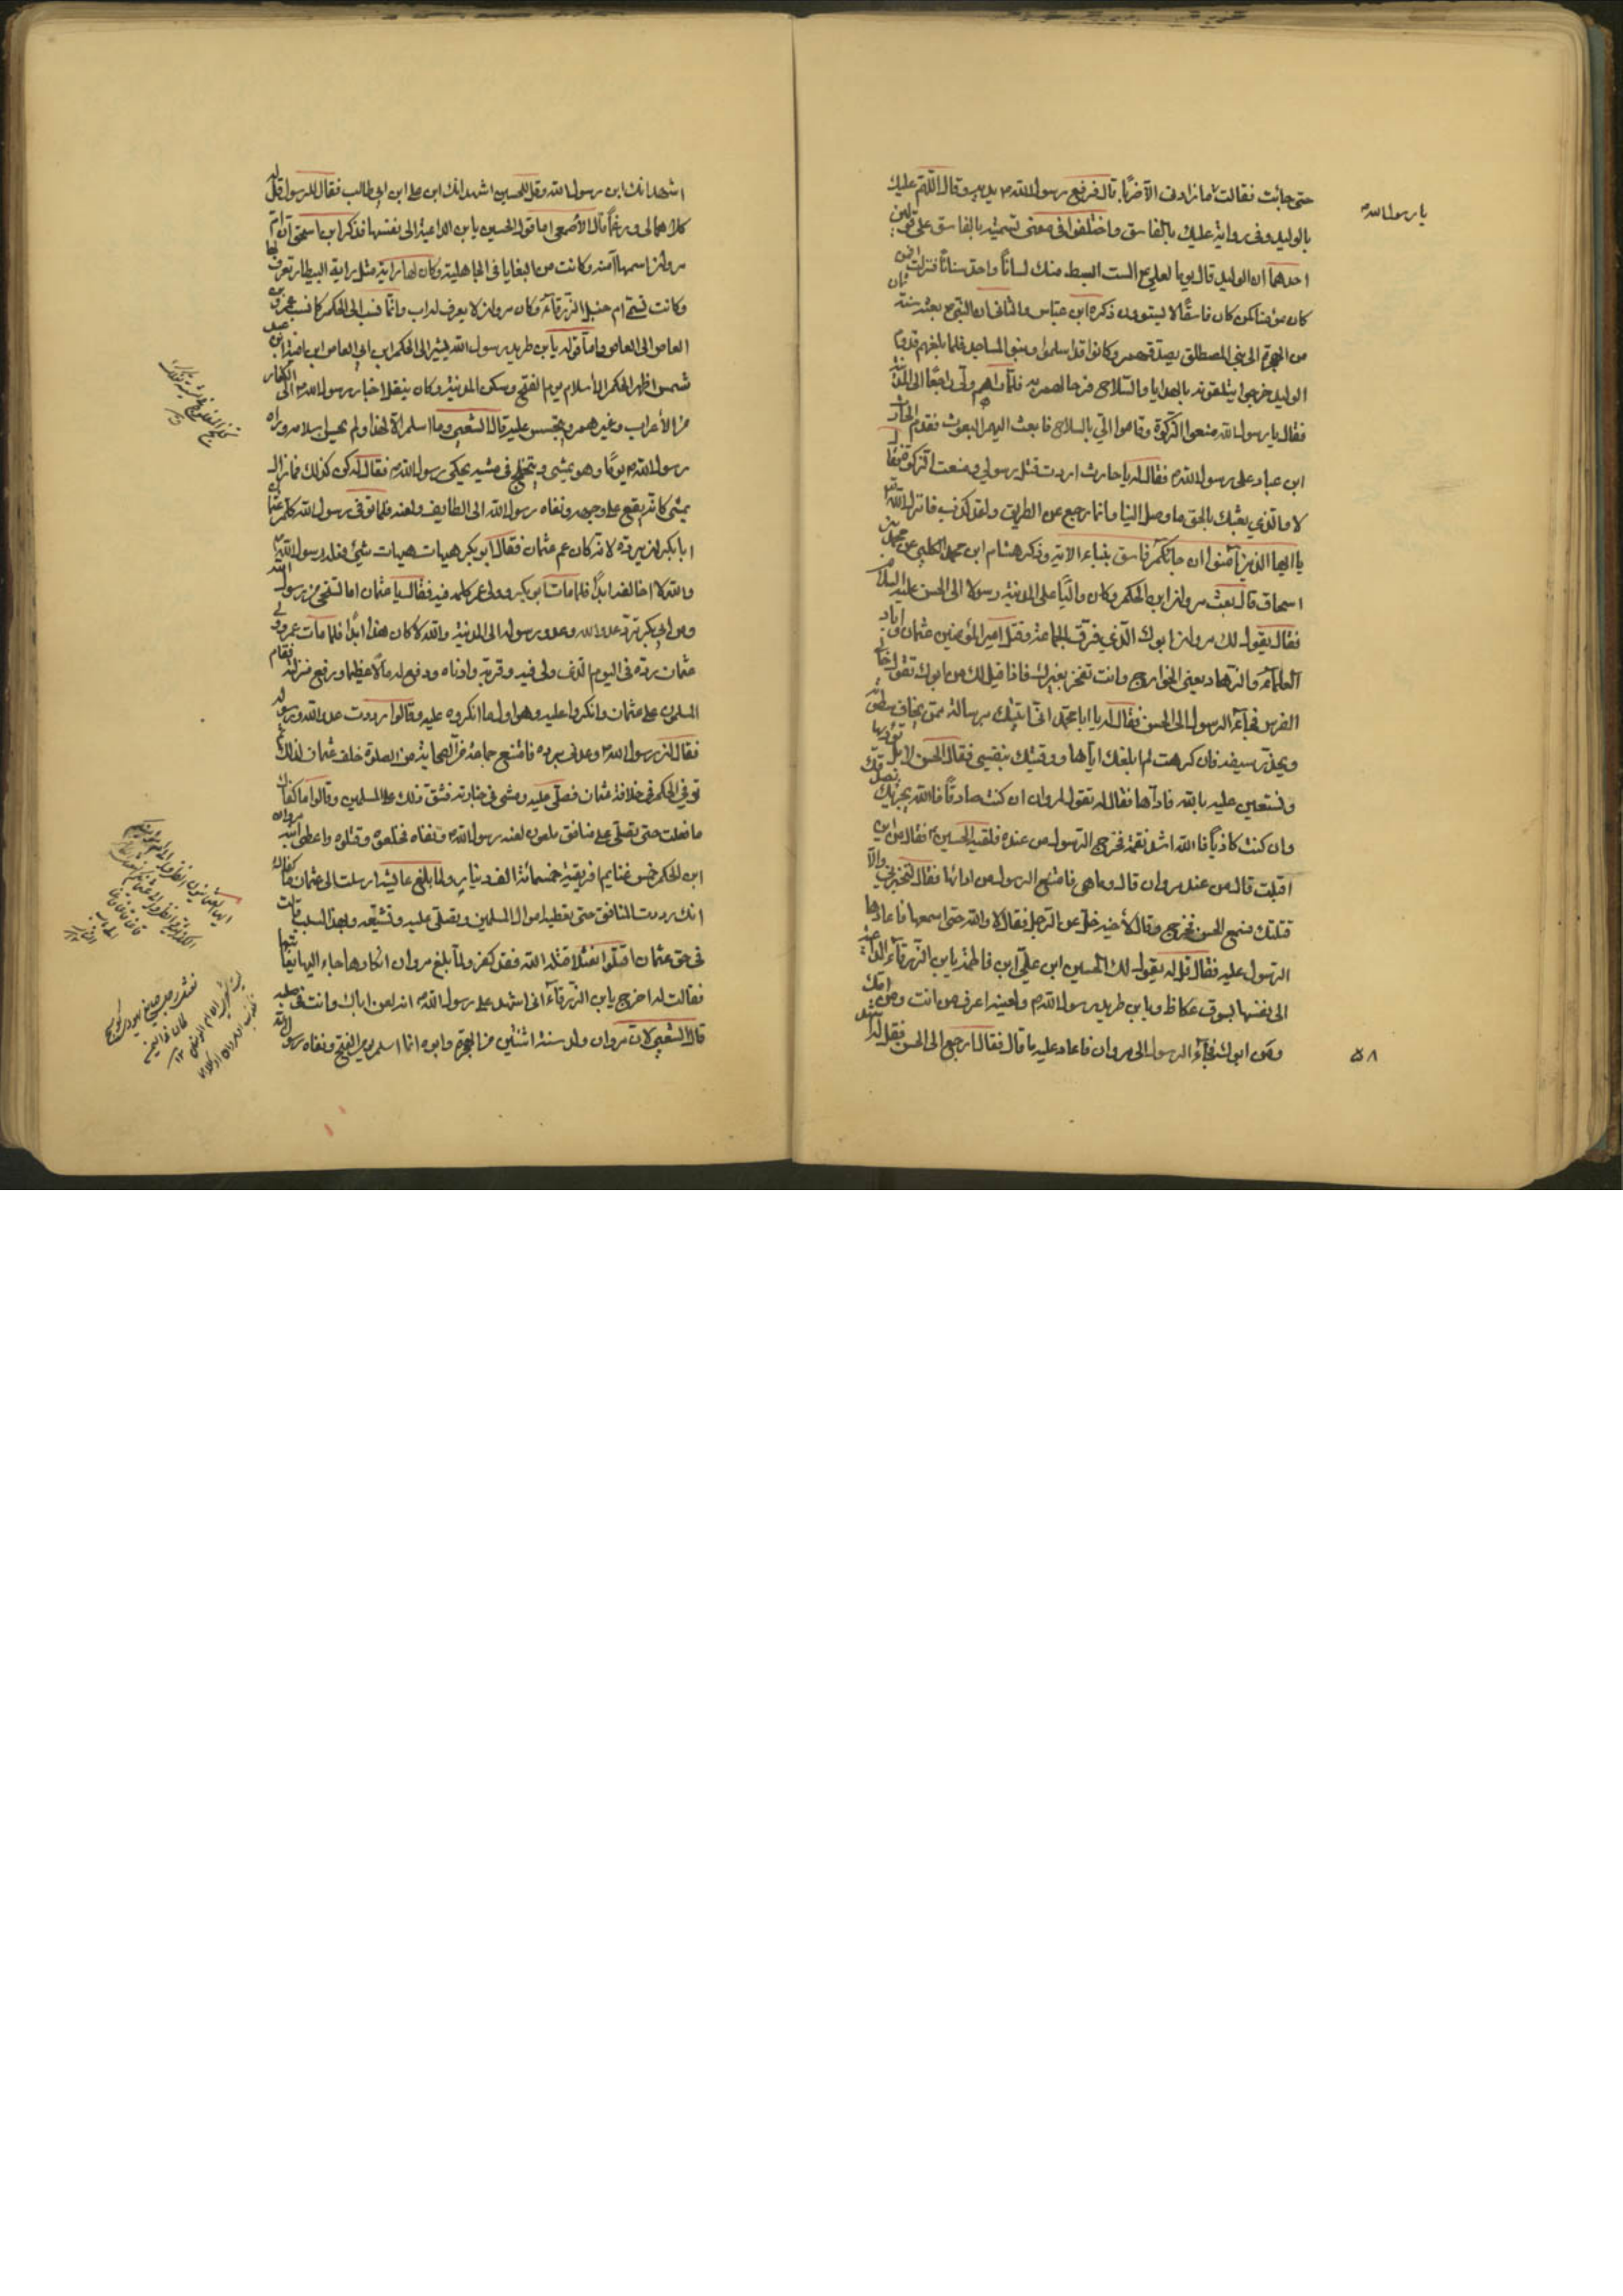 حتى جائت فقالت ما زادني الا ضربا قال فرفع رسول الله يديه وقال اللهم عليك
يا رسول الله
بالوليد وفي رواية عليك بالفاسق واختلفوا في معنى تسميته بالفاسق على قولين
احدهما ان الوليد قال يوما لعلي ع الست ابسط منك لسانا واحد سنانا فنزلت افمن
كان مؤمنا كمن كان فاسقا لا يستوون ذكره ابن عباس والثاني ان النبي بعثه سنة ثمان
من الهجرة الى بني المصطلق يصدقهم وكانوا قد اسلموا وبنوا المساجد فلما بلغهم قدوم
الوليد خرجوا يتلقونه بالهدايا والسلاح فرحا لهم به فلما راهم ولى راجعا الى المدينة
فقال يا رسول الله منعوا الزكوة وقاموا الي بالسلاح فابعث اليهم البعوث فقدم الحارث
ابن عباد على رسول الله فقال له يا حارث اردت قتل رسولي ومنعت الزكوة فقال
لا والذي بعثك بالحق ما وصل الينا وانما رجع عن الطريق ولقد كذب فانزل الله
يا ايها الذين آمنوا ان جائكم فاسق بنباء الاية وذكر هشام ابن محمد الكلبي عن محمد بن
اسحاق قال بعث مروان ابن الحكم وكان واليا على المدينة رسولا الى الحسن عليه السلام
فقال يقول لك مروان ابوك الذي فرق الجماعة وقتل امير المؤمنين عثمان واباد
العلماء والزهاد يعني الخوارج وانت تفخر بغيرك فاذا قيل لك من ابوك تقول خالي
الفرس فجاء الرسول الى الحسن فقال له يا ابا محمد اني اتيتك برسالة ممن يخاف سطوته
ويحذر سيفه فان كرهت لم ابلغك اياها ووقيتك بنفسي فقال الحسن لا بل تؤديها
ونستعين عليه بالله فاداها فقال له تقول لمروان ان كنت صادقا فالله يجزيك بصدقك
وان كنت كاذبا فالله اشد نقمة فخرج الرسول من عنده فلقيه الحسين فقال من اين
اقبلت قال من عند مروان قال وما هي فامتنع الرسول من ادائها فقال لتخبرني والا
قتلتك فسمع الحسن فخرج وقال لأخيه خل عن الرجل فقال لا والله حتى اسمعها فاعادها
الرسول عليه فقال قل له يقول لك الحسين ابن علي ابن فاطمة يابن الزرقاء الداعية
الى نفسها بسوق عكاظ ويابن طريد رسول الله ولعينه اعرف من انت ومن امك
ومن ابوك فجاء الرسول الى مروان فاعاد عليه ما قال فقال ارجع الى الحسن فقل له
٥٨
اشهد انك ابن رسول الله وقل للحسين اشهد انك ابن علي ابن ابي طالب فقال للرسول قل له
كلاهما لي ورغما قال الأصمعي اما قول الحسين يابن الداعية الى نفسها فذكر ابن اسحق ان ام
مروان اسمها آمنة وكانت من البغايا في الجاهلية وكان لها راية مثل راية البيطار تعرف بها
وكانت تسمى ام حنبل الزرقاء وكان مروان لا يعرف له اب وانما نسب الى الحكم كما نسب عمرو
العاص الى العاص واما قوله يابن طريد رسول الله يشير الى الحكم ابن ابي العاص ابن امية ابن عبد
شمس اظهر الحكم الاسلام يوم الفتح وسكن المدينة وكان ينقل اخبار رسول الله الى الكفار
من الأعراب وغيرهم ويتجسس عليه قال الشعبي وما اسلم الا لهذا ولم يحسن اسلامه وراه
رسول الله يوما وهو يمشي ويتخلج في مشيه يحكي رسول الله فقال له كن كذلك فما زال
يمشي كانه يقع على وجهه ونفاه رسول الله الى الطايف ولعنه فلما توفي رسول الله كلم عثمان
ابا بكر ان يرده لانه كان عم عثمان فقال ابو بكر هيهات هيهات شيئ فعله رسول الله
والله لا اخالفه ابدا فلما مات ابو بكر وولى عمر كلمه فيه فقال يا عثمان اما تستحي من رسول الله
ومن ابي بكر ترد عدو الله وعدو رسوله الى المدينة والله لا كان هذا ابدا فلما مات عمر وولي
عثمان رده في اليوم الذي ولى فيه وقربه وادناه ودفع له مالا عظيما ورفع منزلته فقام
المسلمون على عثمان وانكروا عليه وهو اول ما انكروه عليه وقالوا رددت عدو الله ورسوله
فقال ان رسول الله وعدني برده فامتنع جماعة من الصحابة من الصلوة خلف عثمان لذلك ثم
توفي الحكم في خلافة عثمان فصلى عليه ومشى في جنازته فشق ذلك على المسلمين وقالوا ما كفاك
ما فعلت حتى تصلي على منافق ملعون لعنه رسول الله ونفاه فخلعوه وقتلوه واعطى ابنه مروان
ابن الحكم خمس غنايم افريقية خمسمائة الف دينار ولما بلغ عايشة ارسلت الى عثمان ما كفاك
انك رددت المنافق حتى تعطيه اموال المسلمين وتصلي عليه وتشيعه وبهذا السبب قالت
في حق عثمان اقتلوا نعثلا قتله الله فقد كفر ولما بلغ مروان انكارها جاء اليها يعاتبها
فقالت له اخرج يابن الزرقاء اني اشهد على رسول الله انه لعن اباك وانت في صلبه
قال الشعبي لان مروان ولد سنة اثنتين من الهجرة وابوه انما اسلم يوم الفتح ونفاه رسول الله